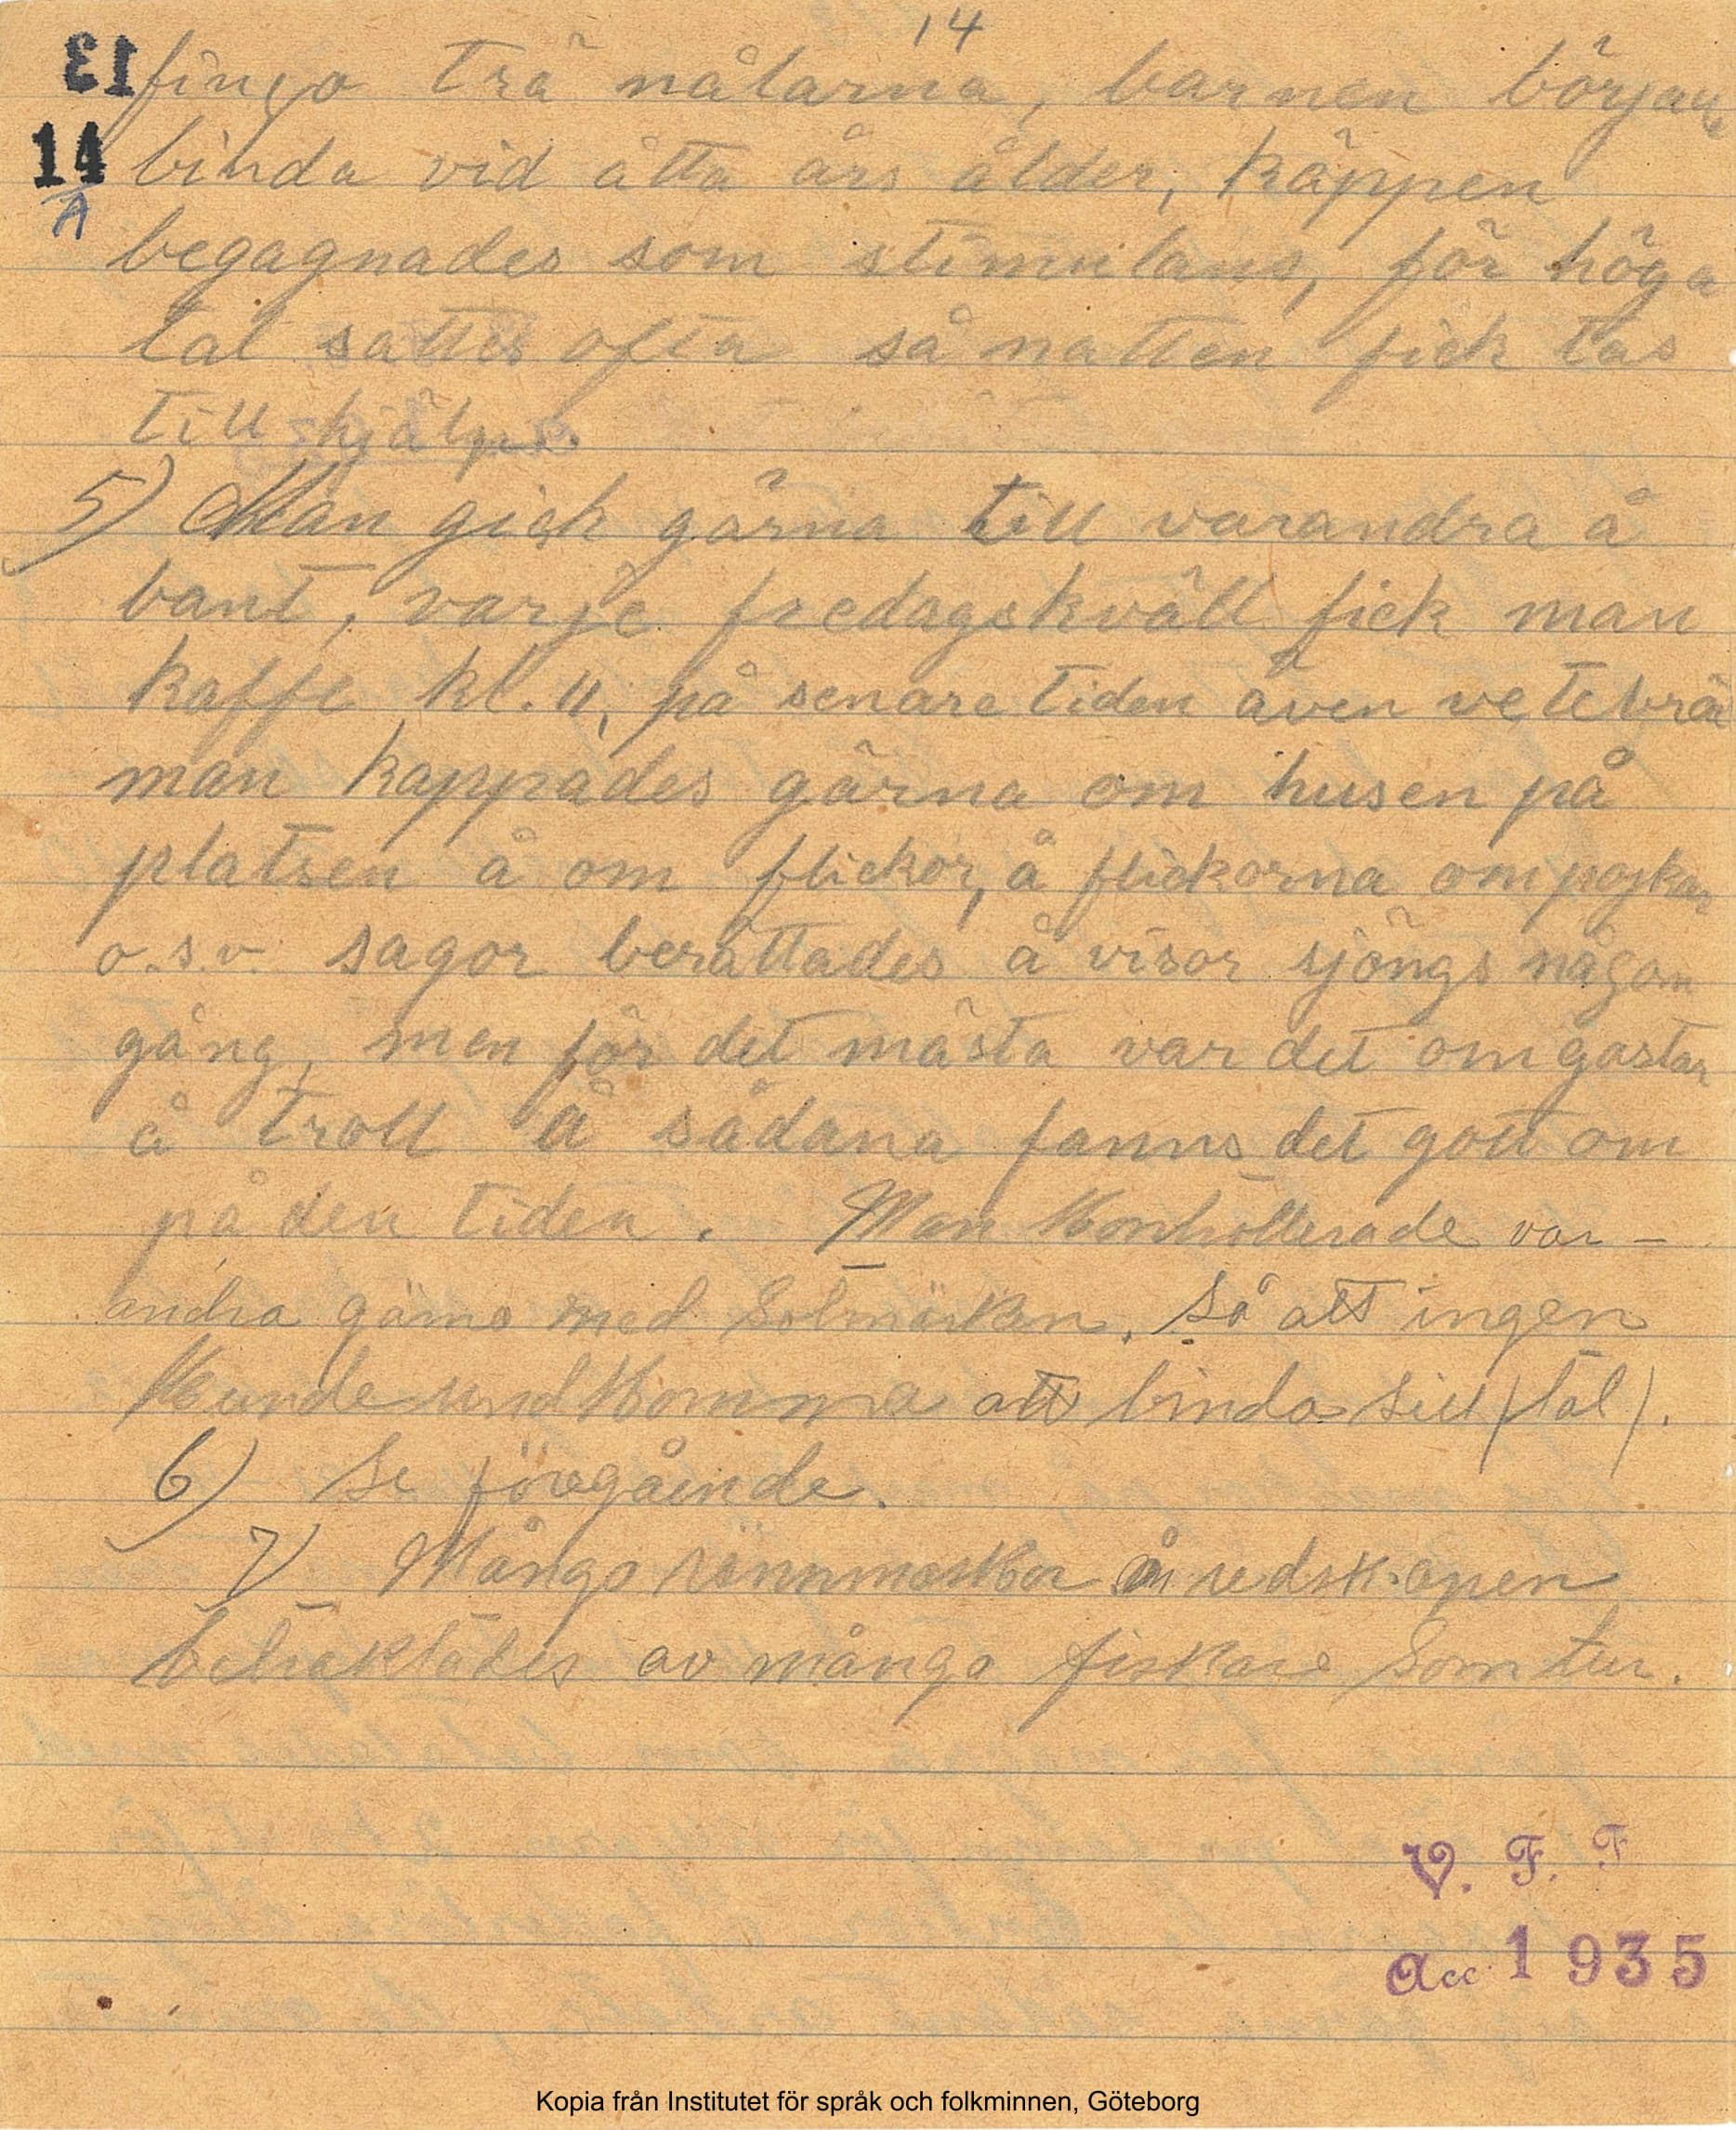 14
13
fingo trä nålarna, barnen började
14
A
binda vid åtta års ålder, käppen
begagnades som stimulans, för höga
tal sattes ofta så natten fick tas
till hjälp.
5) Man gick gärna till varandra å
bant, varje fredagskväll fick man
kaffe kl. 11, på senare tiden även vetebrö
man kappades gärna om husen på
platsen å om flickor, å flickorna om pojkar
o.s.v. sagor berättades å visor sjöngs någon
gång, men för det mästa var det om gastar
å troll å sådana fanns det gott om
på den tiden. Man kontrollerade var-
andra gärna med Solmärken, så att ingen
kunde undkomma att binda sitt (tal).
6) Se föregående.
7) Många rännmaskor å redskapen
betraktades av många fiskare som tur.
V. F. F
Acc. 1935
Kopia från Institutet för språk och folkminnen, Göteborg